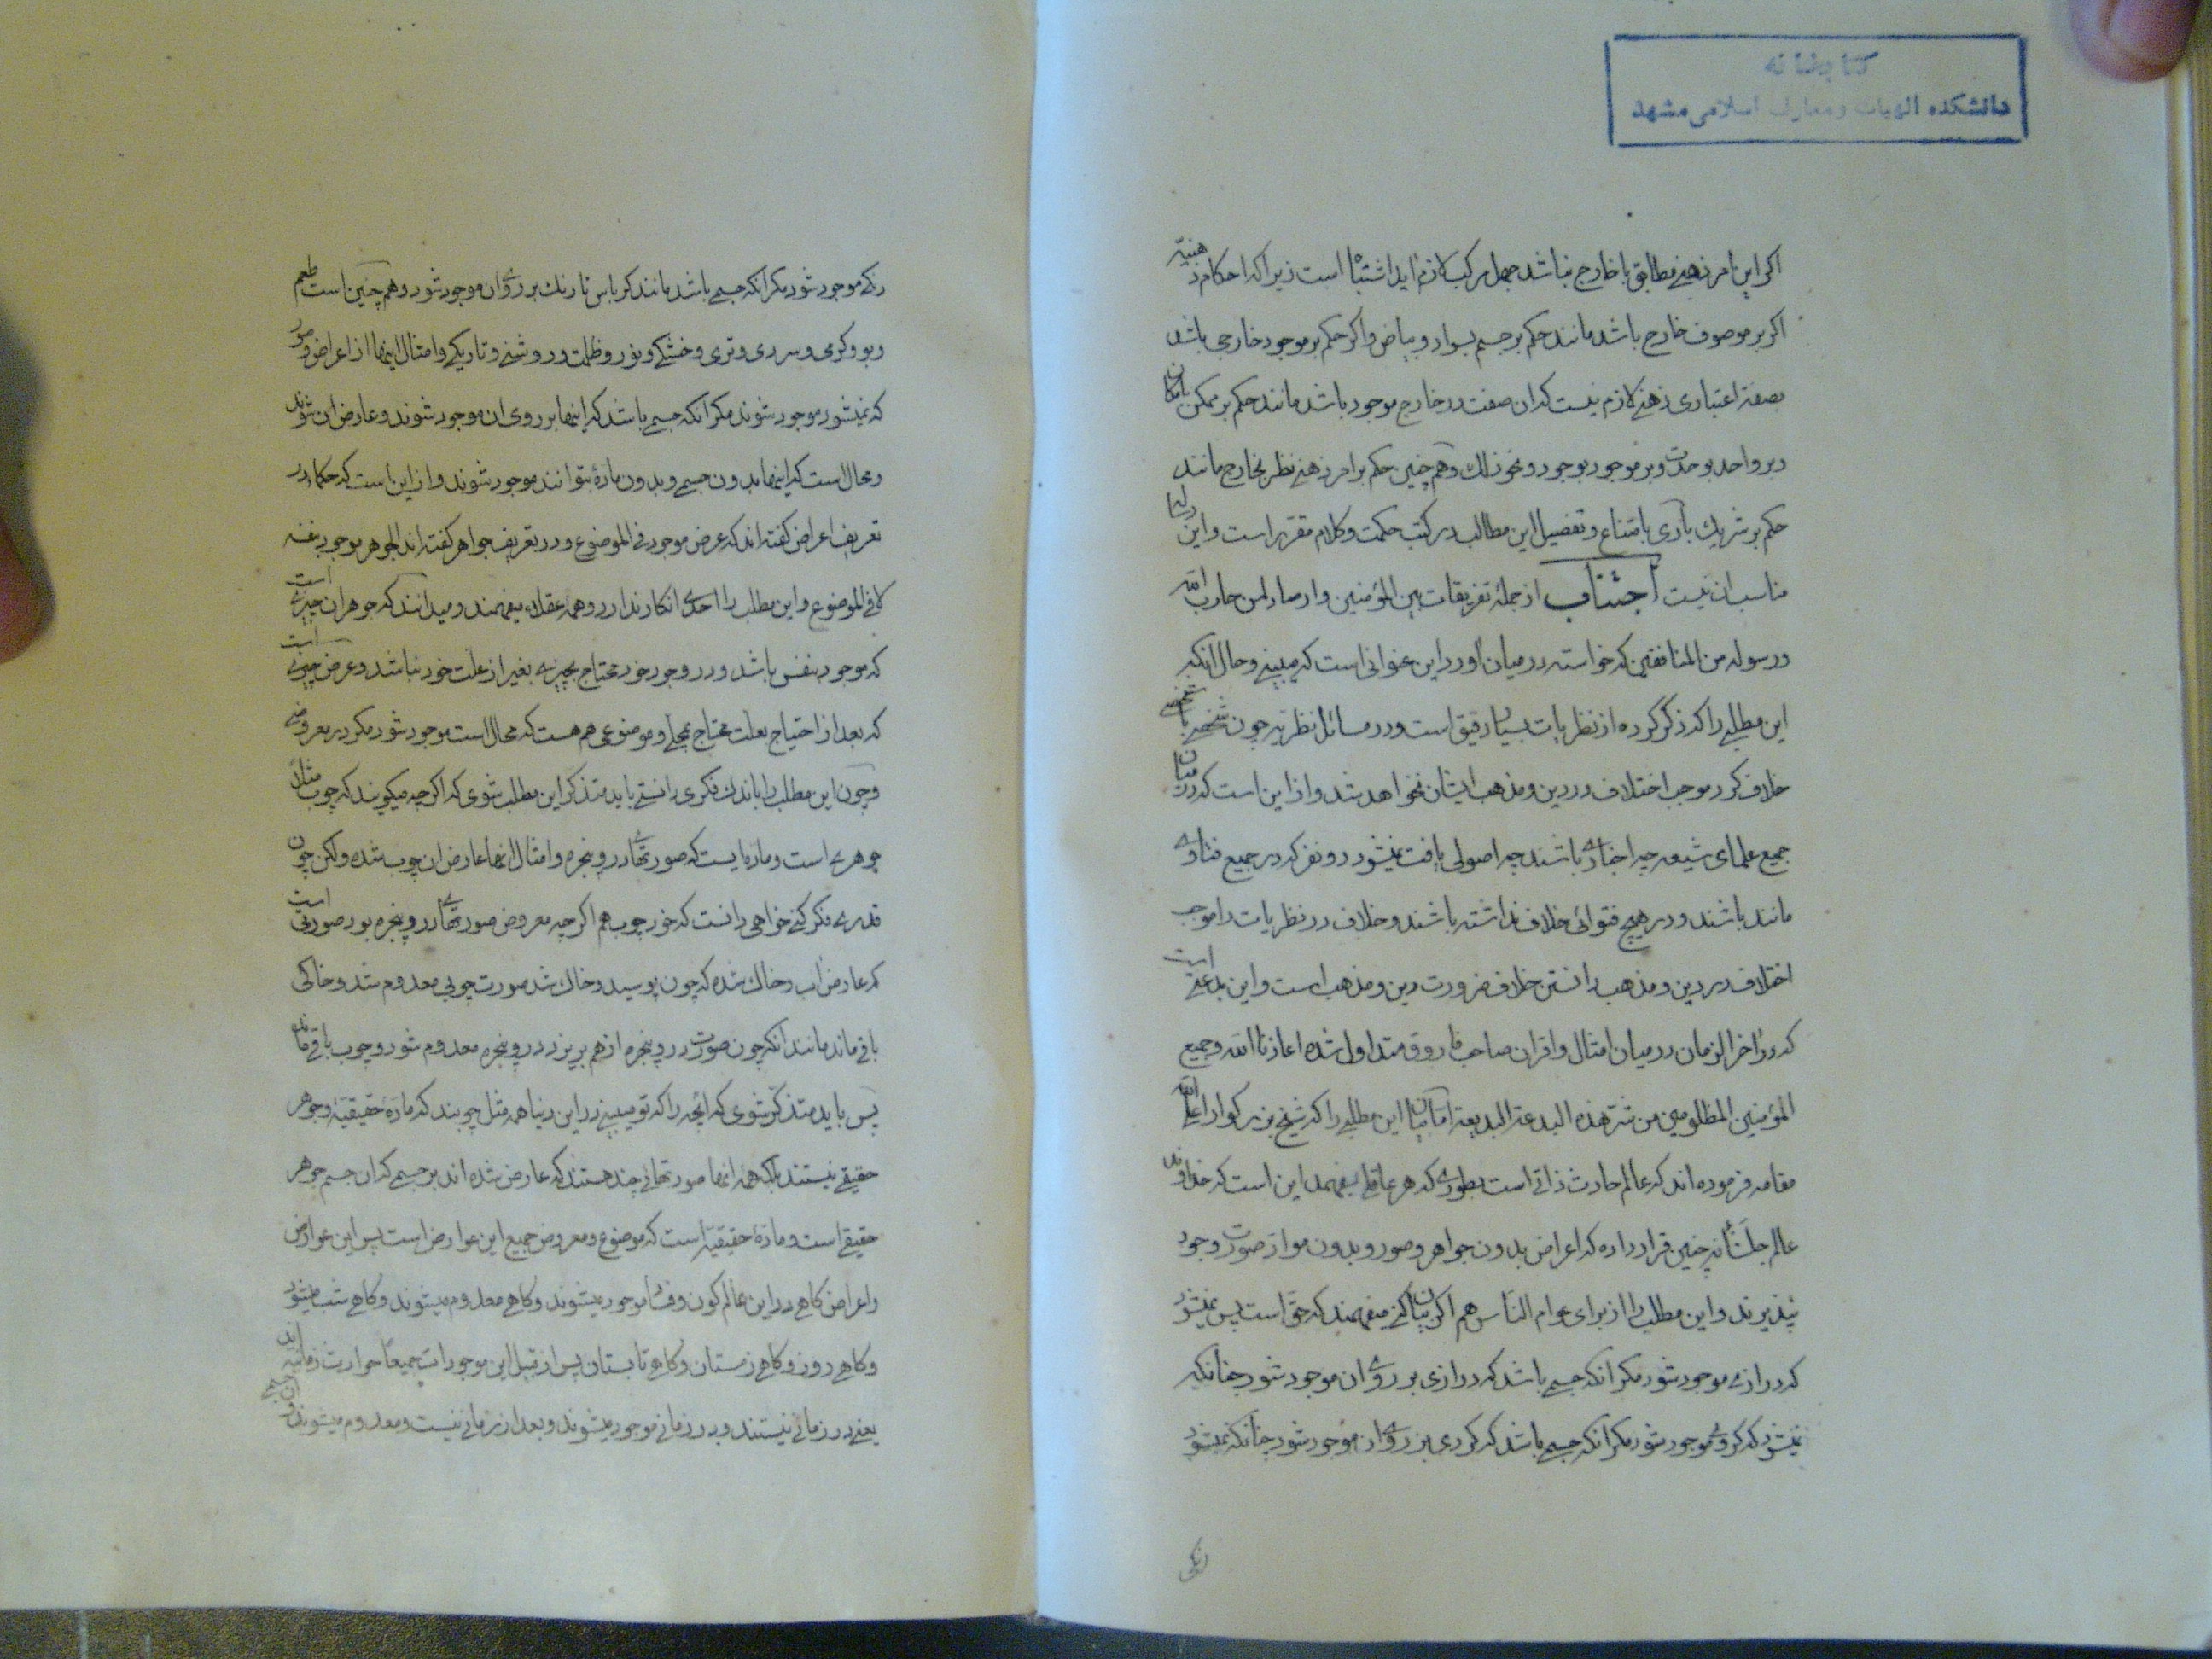 کتابخانه
دانشکده الهیات و معارف اسلامی مشهد
اکر این امر ذهنی مطابق با خارج نباشد جهل مرکب لازم اید اشتباه است زیرا که احکام ذهنیه
اکر بر موصوف خارج باشد مانند حکم بر جسم بسواد و بیاض و اکر حکم بر موجود خارجی باشد
بصفة اعتباری ذهنی لازم نیست که ان صفت در خارج موجود باشد مانند حکم بر ممکن بامکان
و بر واحد بوحدت و بر موجود بوجود و نحو ذلک و همچنین حکم بر امر ذهنی نظر بخارج مانند
حکم بر شریک باری بامتناع و تفصیل این مطالب در کتب حکمت و کلام مقرر است و این رساله
مناسب ان نیست اجتناب از جمله تفریقات بین المؤمنین و ارصاد لمن حارب الله
و رسوله من المنافقین که خواسته در میان اورد این عنوانی است که میبینی و حال انکه
این مطلبی را که ذکر کرده از نظریات بسیار دقیق است و در مسائل نظریه چون شخصی با شخصی
خلاف کرد موجب اختلاف در دین و مذهب ایشان نخواهد شد و از این است که در میان
جمیع علمای شیعه چه اخباری باشند چه اصولی یافت نمیشود دو نفر که در جمیع فتاوی
مانند باشند و در هیچ فتوائی خلاف نداشته باشند و خلاف در نظریات را موجب
اختلاف در دین و مذهب دانستن خلاف ضرورت دین و مذهب است و این بدعتی است
که در اخر الزمان در میان امثال و اقران صاحب فاروق متداول شده اعاذنا الله و جمیع
المؤمنین المظلومین من شر هذه البدعة البدیعة اما بیان این مطلبی را که شیخ بزرکوار اعلی الله
مقامه فرموده اند که عالم حادث ذاتی است بطوری که هر عاقلی بفهمد این است که خداوند
عالم جل شانه چنین قرار داده که اعراض بدون جواهر و صور و بدون مواد صورت وجود
نپذیرند و این مطلب را از برای عوام الناس هم اکر بیان کنی میفهمند که حق است پس نمیشود
که درازی موجود شود مکر انکه جسمی باشد که درازی بر روی ان موجود شود چنانکه
نمیشود که کردی موجود شود مکر انکه جسمی باشد که کردی بر روی ان موجود شود چنانکه نمیشود
رنکی
رنکی موجود شود مکر انکه جسمی باشد مانند کرباس تا رنک بر روی ان موجود شود و همچنین است طعم
و بو و کرمی و سردی و تری و خشکی و نور و ظلمت و روشنی و تاریکی و امثال اینها از اعراض و صور
که نمیشود موجود شوند مکر انکه جسمی باشد که اینها بر روی ان موجود شوند و عارض ان شوند
و محال است که اینها بدون جسم و بدون مادۀ بتوانند موجود شوند و از این است که حکماء در
تعریف اعراض کفته اند که عرض موجود فی الموضوع و در تعریف جواهر کفته اند الجوهر موجود بنفسه
لا فی الموضوع و این مطلب را احدی انکار ندارد و همه عقلاء میفهمند و میدانند که جوهر ان چیزی است
که موجود بنفس باشد و در وجود خود محتاج بچیزی بغیر از علت خود نباشد و عرض چیزی است
که بعد از احتیاج بعلت محتاج بمحلی و موضوعی هم هست که محال است موجود شود مکر در معروضی
و چون این مطلب را باندک فکری دانستی باید متذکر این مطلب شوی که اکر چه میکویند که چوب مثلا
جوهری است و مادۀ ایست که صورتهای در و پنجره و امثال انها عارض ان چوب شده و لکن چون
قدری فکر کنی خواهی دانست که خود چوب هم اکر چه معروض صورتهای در و پنجره بود صورتی است
که عارض اب و خاک شده که چون پوسید و خاک شد صورت چوبی معدوم شد و خاکی
باقی ماند مانند انکه چون صورت در و پنجره از هم بریزد در و پنجره معدوم شود و چوب باقی ماند
پس باید متذکر شوی که انچه را که تو میبینی در این دنیا همه مثل چوبند که مادۀ حقیقیۀ و جوهر
حقیقی نیستند بلکه همه انها صورتهائی چند هستند که عارض شده اند بر جسم که ان جسم جوهر
حقیقی است و مادۀ حقیقیۀ است که موضوع و معروض جمیع این عوارض است پس این عوارض
و اعراض کاهی در این عالم کون و فساد موجود میشوند و کاهی معدوم میشوند و کاهی شب میشود
و کاهی روز و کاهی زمستان و کاهی تابستان پس از قبیل این موجودات جمیعا حوادث زمانیه اند
یعنی در زمانی نیستند و در زمانی موجود میشوند و بعد از زمانی نیست و معدوم میشوند